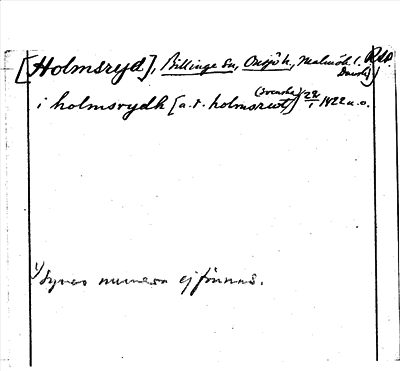 [Holmsryd], Billinge sn, Onsjö h., Malmöh l.
i holmsrydh (a.t. holmsrwt) (svenska) 22/1 1422 a.o.
1) Synes numera ej finnas.